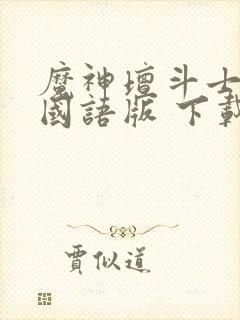 魔神壇斗士
國語版 下載
賈似道